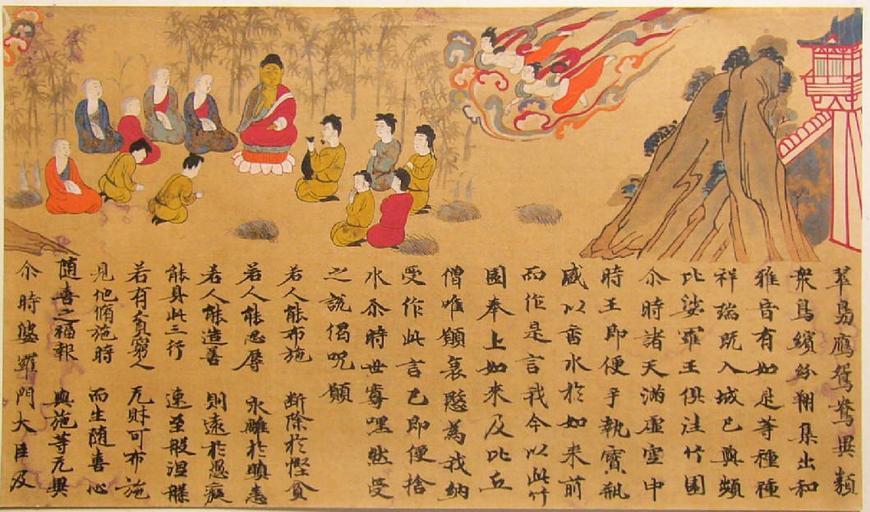 翠鳥鴈鴛鴦異類
衆鳥繽紛翔集出和
雅音有如是等種種
祥瑞既入城已與頻
比娑羅王俱往竹園
尒時諸天滿虛空中
時王即便手執寶瓶
盛以香水於如來前
而作是言我今以此竹
園奉上如來及比丘
僧唯願哀愍為我納
受作此言已即便捨
水尒時世尊嘿然受
之說偈呪願
若人能布施 斷除於慳貪
若人能忍辱 永離於瞋恚
若人能造善 則遠於愚癡
能具此三行 速至般涅槃
若有貧窮人 无財可布施
見他脩施時 而生隨喜心
隨喜之福報 與施等无異
尒時婆羅門大臣及